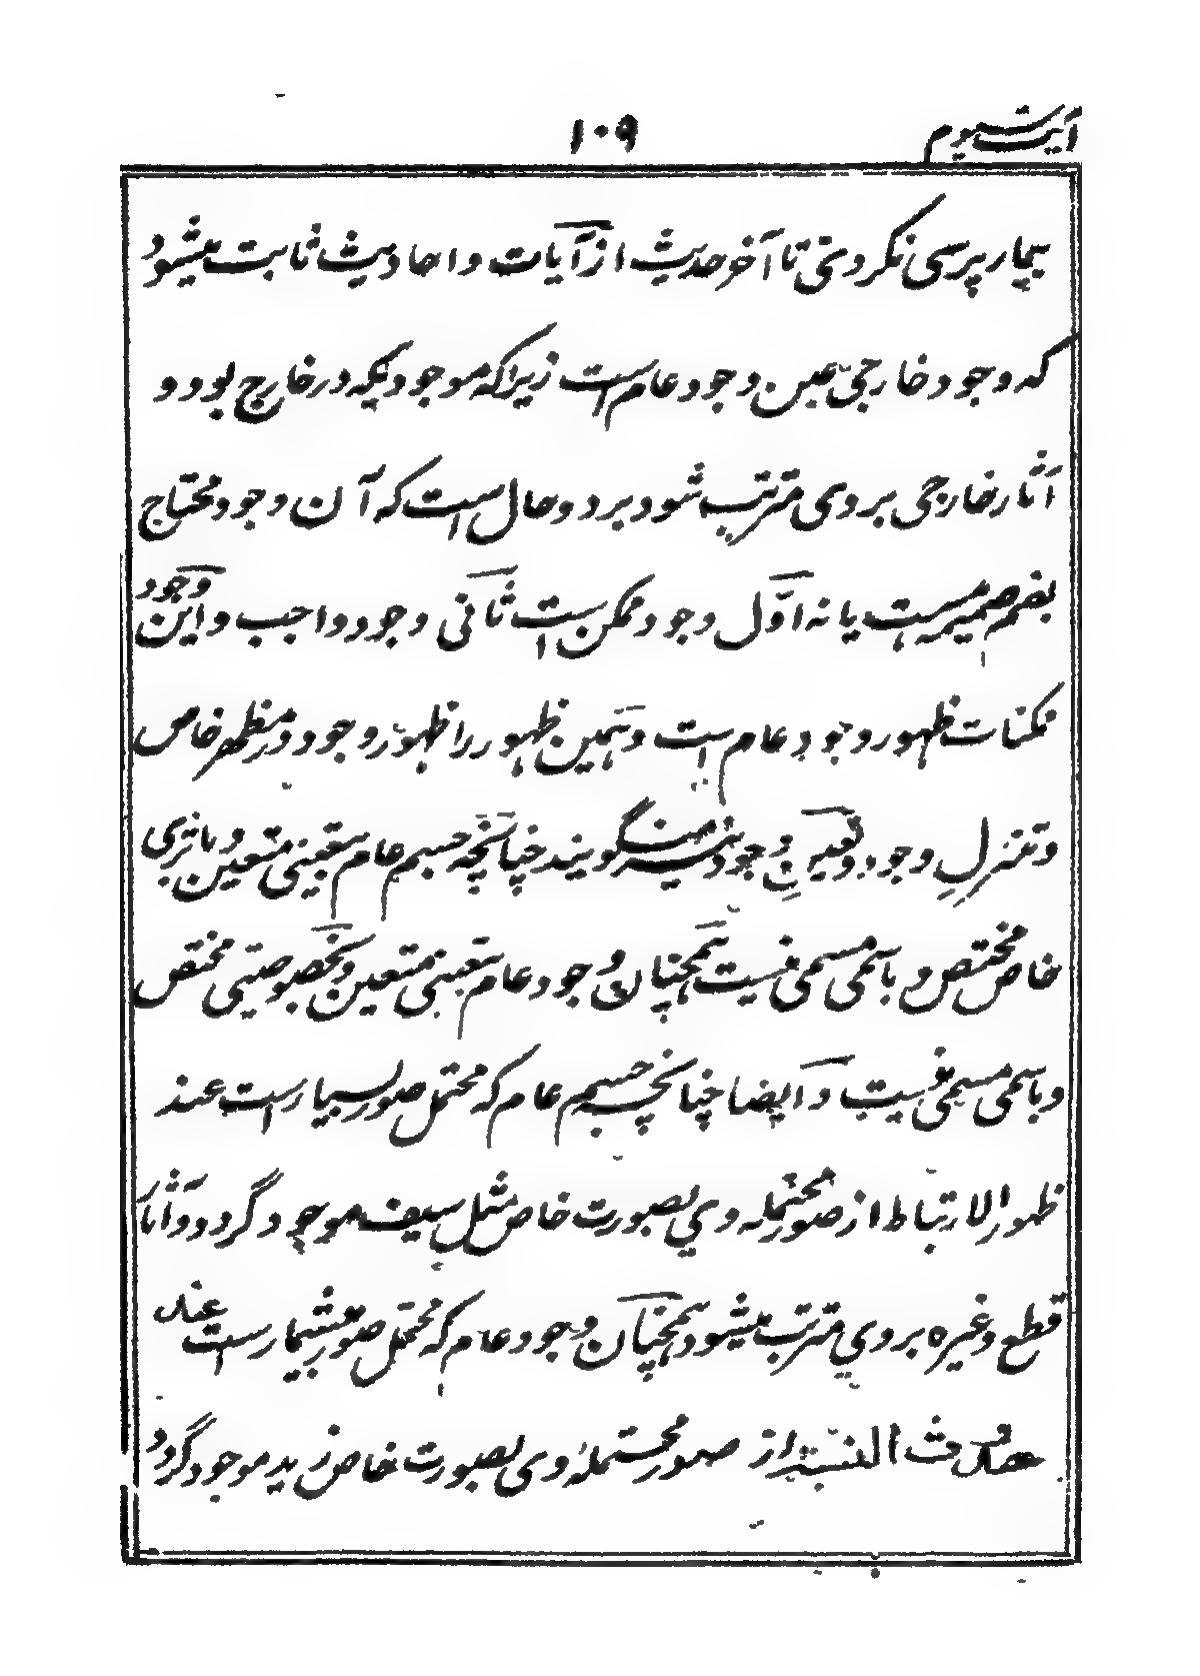 آیت سیوم
۱۰۹
بیمار پرسی نکردی تا آخر حدیث از آیات و احادیث ثابت میشود
که وجود خارجی عین وجود عام است زیرا که موجودیکه در خارج بود و
آثار خارجی بروی مترتب شود بر دو حال است که آن وجود محتاج
بضم ضمیمه است یا نه اوّل وجود ممکن است ثانی وجود واجب و این وجود
ممکنات ظهور وجود عام است و همین ظهور را ظهور وجود در مظهر خاص
و تنزل وجود و تعین وجود نیز میگویند چنانچه جسم عام بتعینی متعین و باثری
خاص مختص و باسمی مسمی نیست همچنان وجود عام بتعینی متعین و بخصوصیتی مختص
و باسمی مسمی نیست و ایضا چنانچه جسم عام که محتمل صور بسیار است عند
ظهور الارتباط از صور محتمله وی بصورت خاص مثل سیف موجود گردد و آثار
قطع و غیره بروی مترتب میشود همچنان وجود عام که محتمل صور بیشمار است عند
حدوث النسبة از صور محتملهٔ وی بصورت خاص زید موجود گردد